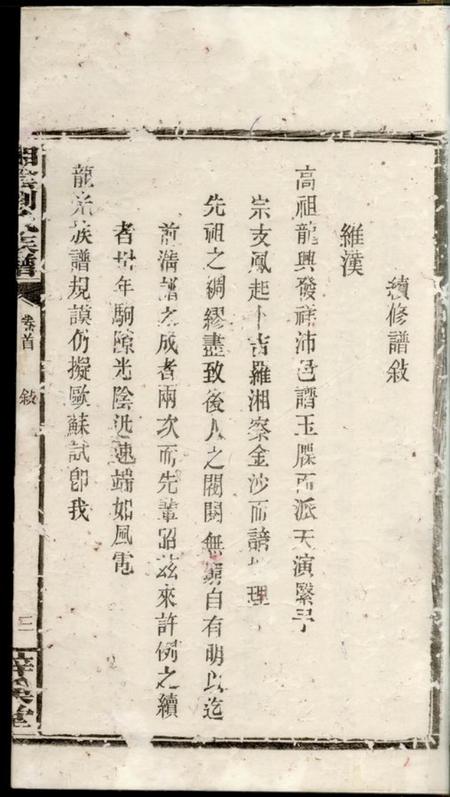 續修譜敘
維漢
高祖龍興發祥沛邑譜玉牒而派天演緊予
宗支鳳起卜吉羅湘察金沙而諳地理
先祖之綢繆盡致後人之閥閱無窮自有明以迄
前清譜之成者兩次而先輩昭茲來許例之續
者卅年駒隙光陰迅速端如風電
龍光族譜規謨仍擬歐蘇試卽我
湘陰劉氏族譜
卷首
敘
三
堂